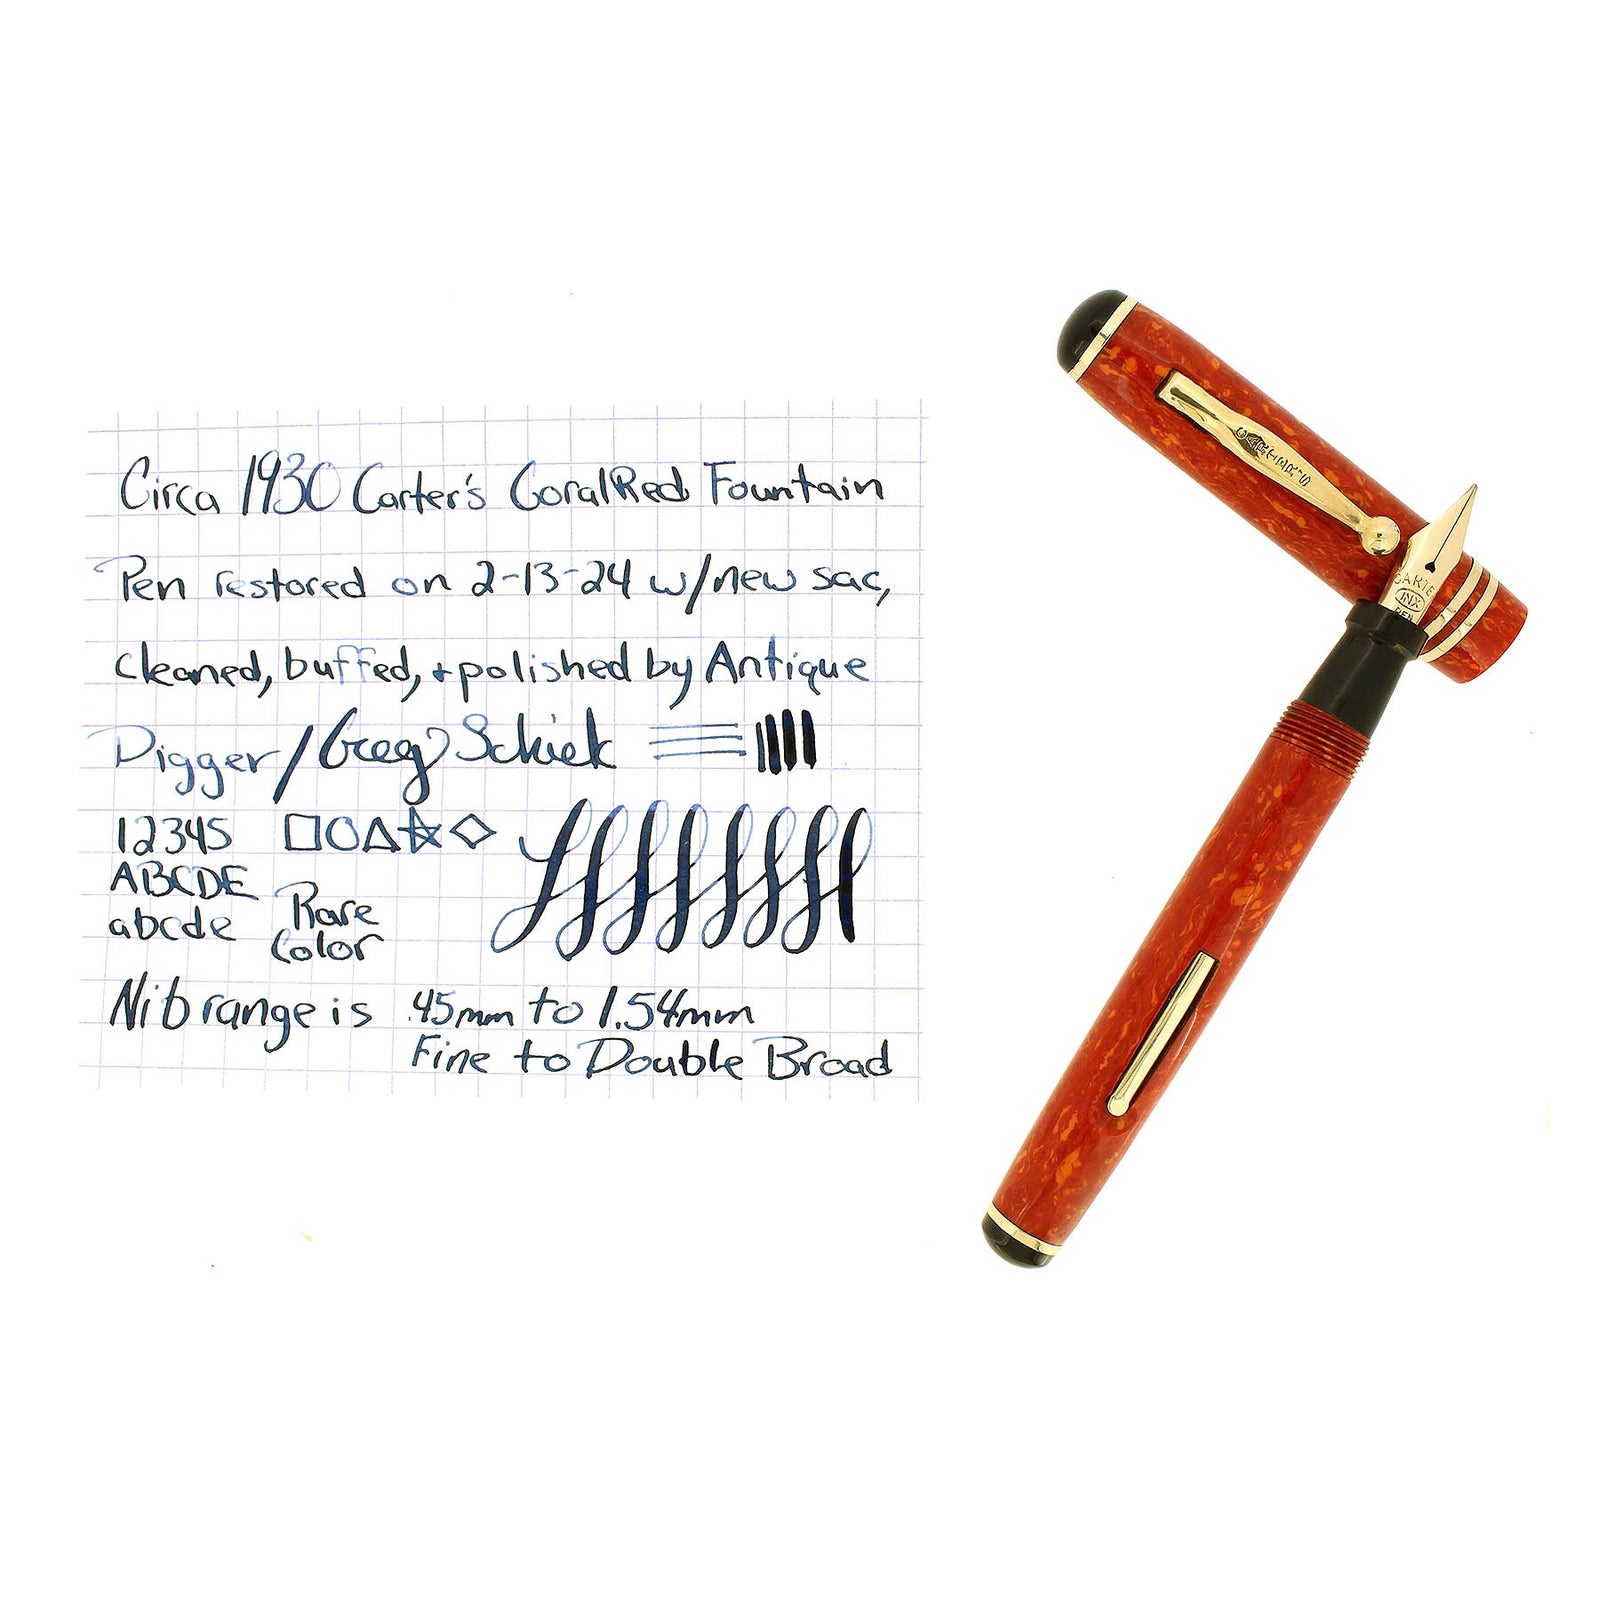 Circa 1930 Carter's Coral Red Fountain
Pen restored on 2-13-24 w/new sac,
cleaned, buffed, + polished by Antique
Digger/Greg Schiek
12345
ABCDE
abcde
Rare
Color
Nib range is .45mm to 1.54mm
Fine to Double Broad
CARTER'S
CARTE
INX
PEN